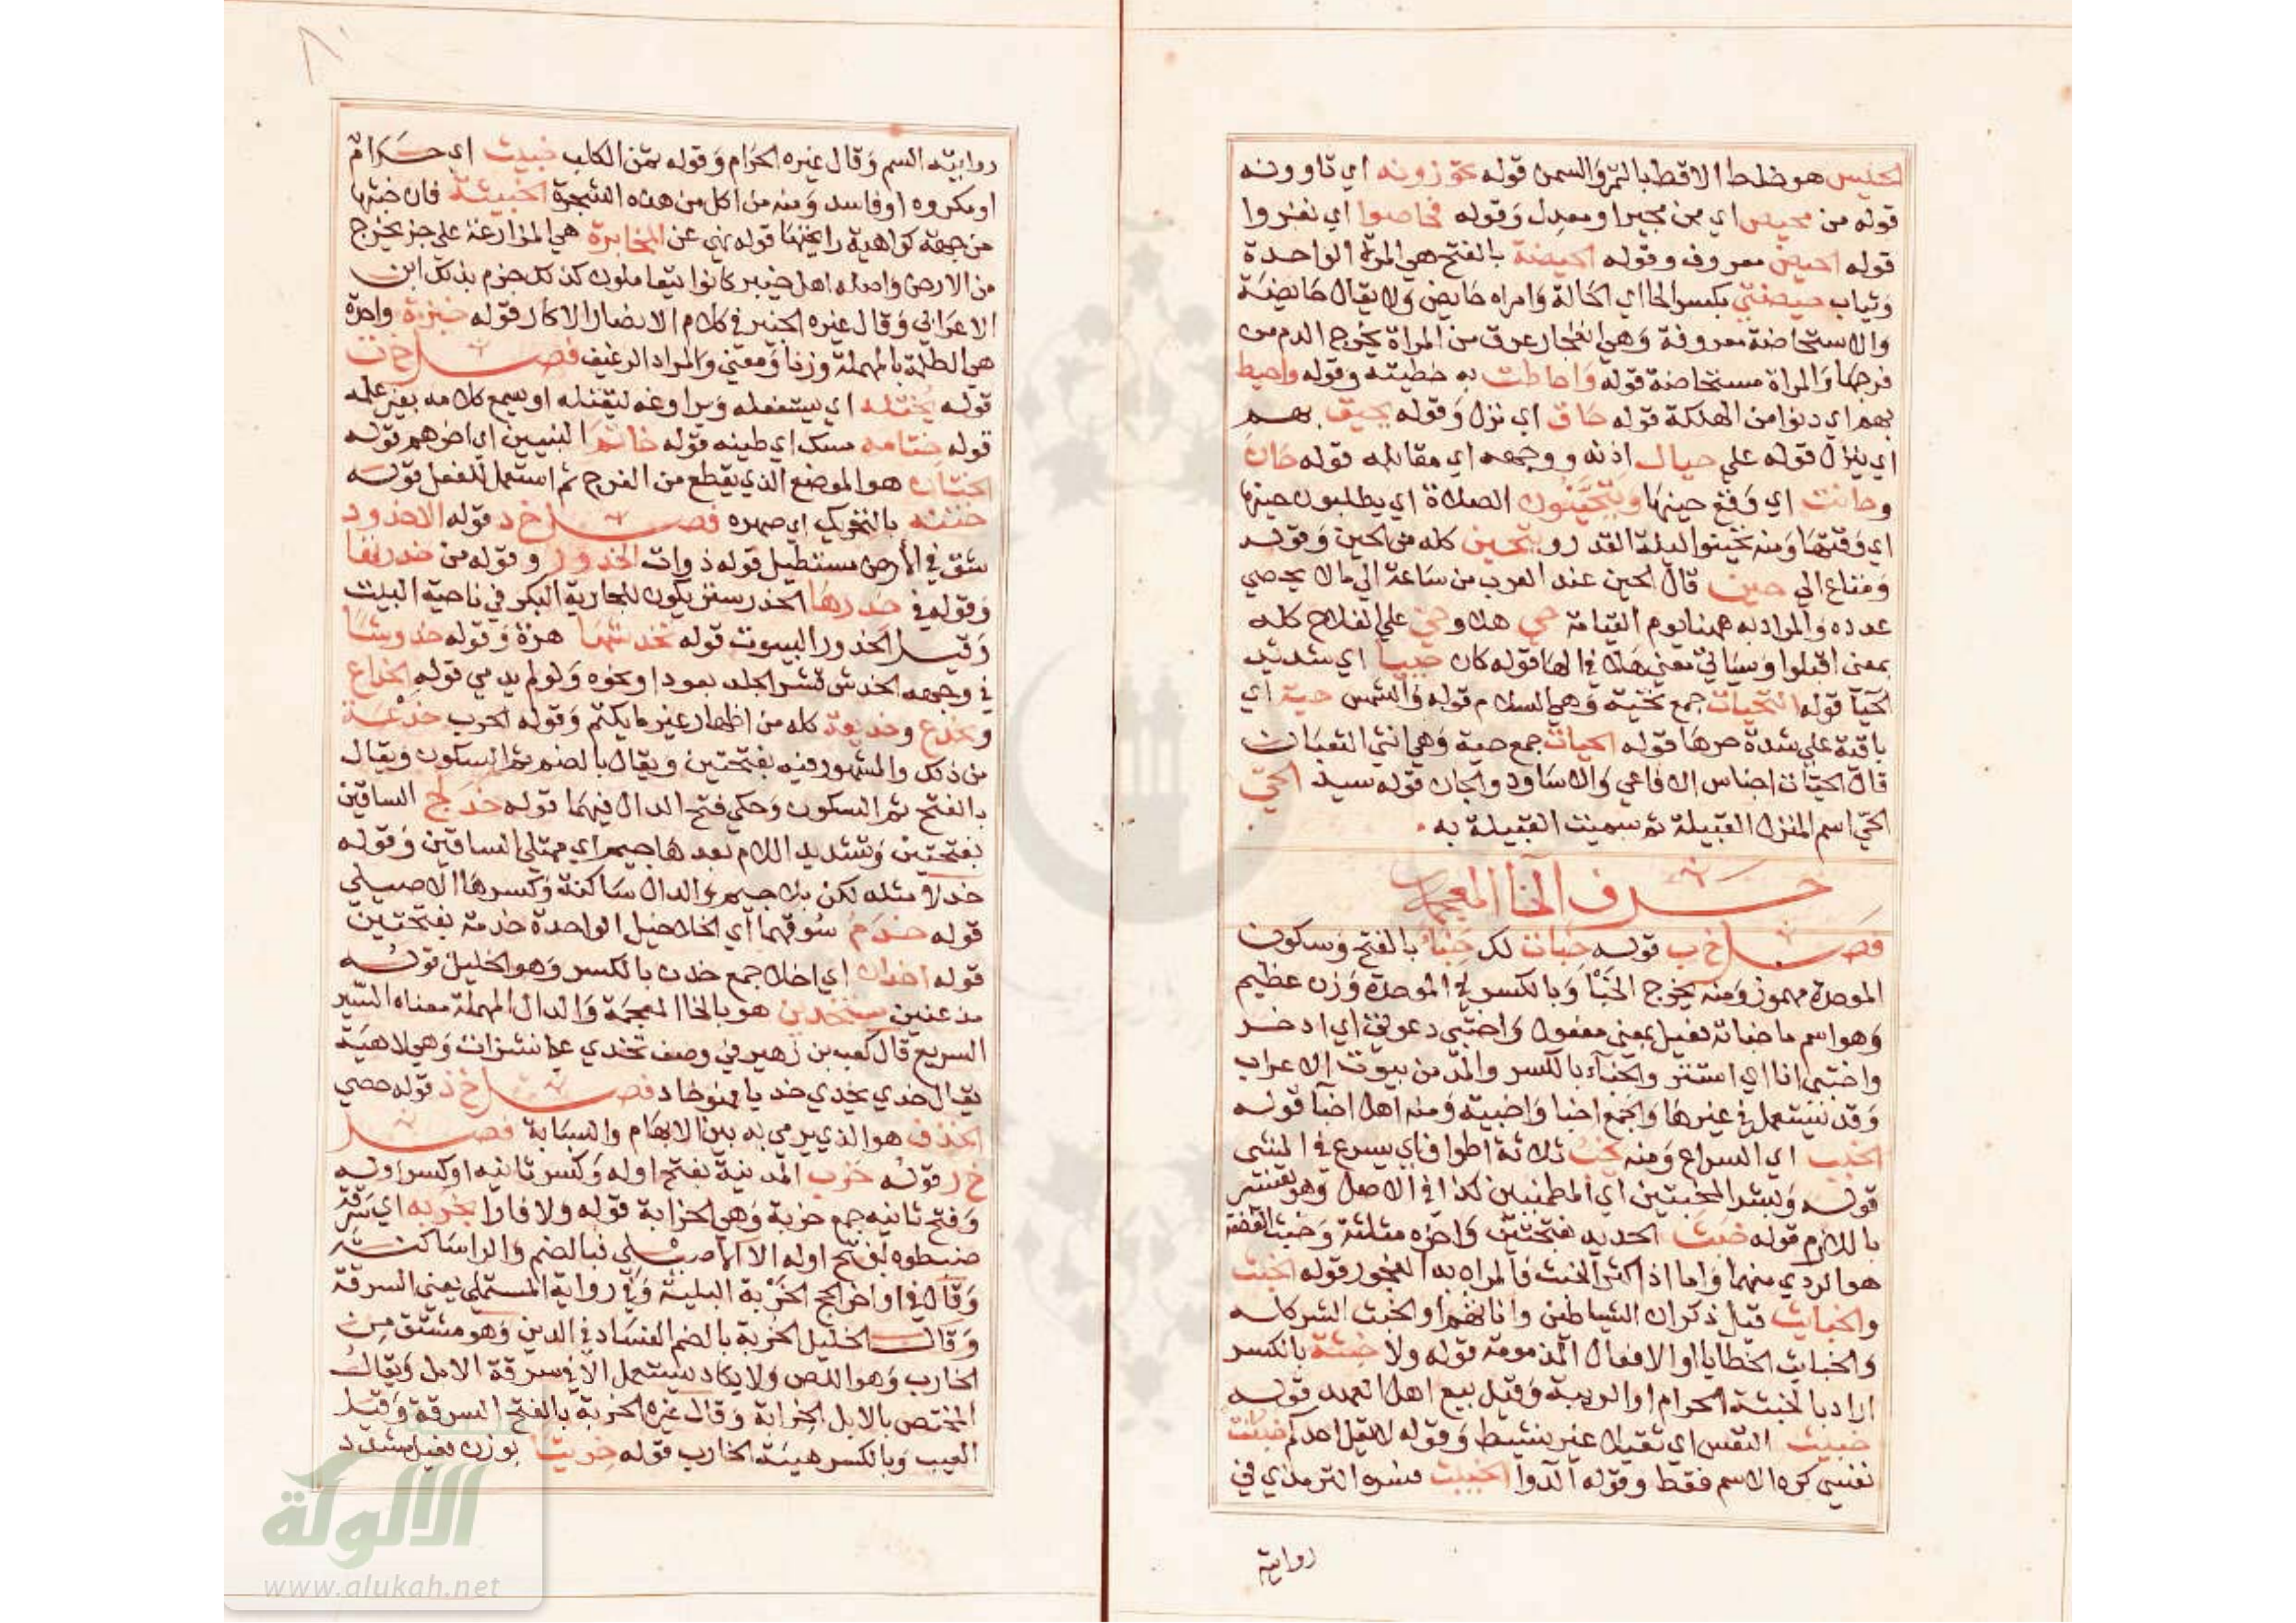 الحيس هو خلط الاقط بالتمر والسمن قوله تحوزونه اي تاوونه
قوله من محيص اي من مجير او معدل وقوله فحاصوا اي نفروا
قوله الحيض معروف وقوله الحيضة بالفتح هي المرة الواحدة
وثياب حيضتي بكسر الحا اي الحالة وامراه حايض ولا يقال حايضة
والاستحاضة معروفة وهي انفجار عرق من المراة يخرج الدم من
فرجها والمراة مستحاضة قوله واحاطت به خطيته وقوله واحيط
بهم اي دنوا من الهلكة قوله حاق اي نزل وقوله يحيق بهم
اي ينزل قوله على حيال اذنه ووجهه اي مقابله قوله حان
وحانت اي وقع حينها ويتحينون الصلاة اي يطلبون حينها
اي وقتها ومنه تحينوا ليلة القدر ويتحين كله من الحين وقوله
ومتاع الي حين قال الحين عند العرب من ساعة الي ما لا يحصي
عدده والمراد به همنا يوم القيامة حي هلا وحي علي الفلاح كله
بمعني اقبلوا وسياتي معني هلا في الها قوله كان حييا اي شديد
الحيا قوله التحيات جمع تحية وهي السلام قوله والشمس حية اي
باقية علي شدة حرها قوله الحيات جمع حية وهي انثي الثعبان
قال الحيات اجناس الافاعي والاساود والجان قوله سيد الحي
الحي اسم المنزل القبيلة ثم سميت القبيلة به
حرف الخا المعجمة
فصل خ ب قوله خبات لك خبا بالفتح وسكون
الموحدة مهموز ومنه يخرج الخبا وبالكسر في الموحدة وزن عظيم
وهو اسم ما خباته فعيل بمعني مفعول واختبي دعوتي اي ادخر
واختبي انا اي استتر والخباء بالكسر والمد من بيوت الاعراب
وقد تستعمل في غيرها والجمع اخبا واخبية ومنه اهل اخبا قوله
الخبب اي السراع ومنه يخب ثلاثة اطواف اي يسرع في المشي
قوله وبشر المخبتين اي المطمنين كذا في الاصل وهو تفسير
باللازم قوله خبث الحديد بفتحتين واخره مثلثة وخبث الفضة
هو الردي منهما واما اذا كثر الخبث فالمراد به الفجور قوله الخبث
والخبايث قيل ذكران الشياطين واناثهم او الخبث الشر كله
والخبايث الخطايا او الافعال المذمومة قوله ولا خبثة بالكسر
اراد بالخبثة الحرام او الريبة وقيل بيع اهل العهد قوله
خبيث النفس اي ثقيلا غير نشيط وقوله لا يقل احدكم خبثت
نفسي كره الاسم فقط وقوله الدوا الخبيث فسره الترمذي في
رواية
روايته السم وقال غيره الحرام وقوله ثمن الكلب خبيث اي حرام
او مكروه او فاسد ومنه من اكل من هذه الشجرة الخبيثة فان خبثها
من جهة كراهية رايحتها قوله نهي عن المخابرة هي المزارعة علي جز يخرج
من الارض واصله اهل خيبر كانوا يتعاملون كذلك جزم بذلك ابن
الاعرابي وقال غيره الخبير في كلام الانصار الاكار قوله خبزة واحدة
هي الطلمة بالمهملة وزنا ومعني والمراد الرغيف فصل خ ت
قوله يختله اي يستغفله ويراوغه ليقتله او يسمع كلامه بغير علمه
قوله ختامه مسك اي طينه قوله خاتم النبيين اي اخرهم قوله
الختان هو الموضع الذي يقطع من الفرج ثم استعمل للفعل قوله
ختنه بالتحريك اي صهره فصل خ د قوله الاخدود
شق في الارض مستطيل قوله ذوات الخدور وقوله من خدرها
وقوله في خدرها الخدر ستر يكون للجارية البكر في ناحية البيت
وقيل الخدور البيوت قوله تخدشها هرة وقوله خدوشا
في وجهه الخدش قشر الجلد بعود او نحوه ولو لم يدمي قوله الخداع
ويخدع وخديعة كله من اظهار غير ما يكتم وقوله الحرب خدعة
من ذلك والمشهور فيه بفتحتين ويقال بالضم ثم السكون ويقال
بالفتح ثم السكون وحكي فتح الدال فيهما قوله خدلج الساقين
بفتحتين وتشديد اللام بعدها جيم اي ممتلي الساقين وقوله
خدلا مثله لكن بلا جيم والدال ساكنة وكسرها الاصيلي
قوله خدم سوقهما اي الخلاخيل الواحدة خدمة بفتحتين
قوله اخدان اي اخلا جمع خدن بالكسر وهو الخليل قوله
مذعنين مستخذين هو بالخا المعجمة والدال المهملة معناه السير
السريع قال كعب بن زهير في وصف تخدي علي نشزات وهي لاهية
يقال خدي يخدي خديا فهو خاد فصل خ ذ قوله حصي
الخذف هو الذي يرمي به بين الابهام والسبابة فصل
خ ر قوله خرب المدينة بفتح اوله وكسر ثانيه او كسر اوله
وفتح ثانيه جمع خربة وهي الخرابة قوله ولا فارا بخربة اي سرقة
ضبطوه بفتح اوله الا الاصيلي فبالضم والرا ساكنة
وقال في اواخر الحج الخربة البلية وفي رواية المستملي يعني السرقة
وقال الخليل الخربة بالضم الفساد في الدين وهو مشتق من
الخارب وهو اللص ولا يكاد يستعمل الا في سرقة الابل ويقال
المختص بالابل الخرابة وقال غيره الخربة بالفتح السرقة وقيل
العيب وبالكسر هيئة الخارب قوله خريتا بوزن فعيل مشدد
الالوكة
www.alukah.net